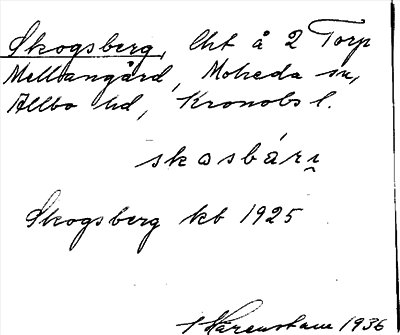 Skogsberg, lht å 2 Torp
Mellangård, Moheda sn,
Allbo hd, Kronobs l.
skɷsbárı̯
Skogsberg kb 1925
1936